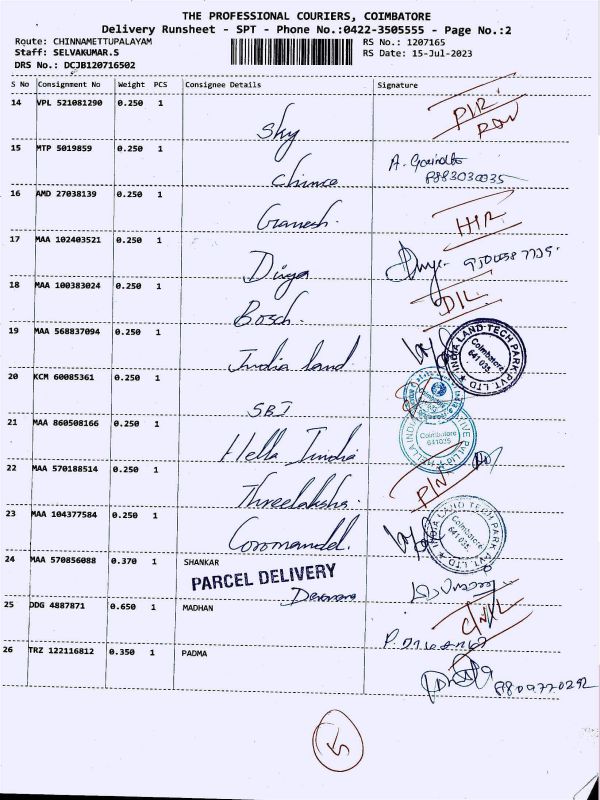 THE PROFESSIONAL COURIERS, COIMBATORE
Delivery Runsheet - SPT - Phone No.:0422-3505555 - Page No.:2
Route: CHINNAMETTUPALAYAM RS No.: 1207165
Staff: SELVAKUMAR.S RS Date: 15-Jul-2023
DRS No.: DCJB120716502
S No Consignment No Weight PCS Consignee Details Signature
14 VPL 521081290 0.250 1 Sky
15 MTP 5019859 0.250 1 A.
16 AMD 27038139 0.250 1 Ganesh.
17 MAA 102403521 0.250 1 Divya
18 MAA 100383024 0.250 1 Bosch. D/L
19 MAA 568837094 0.250 1 India land INDIA LAND TECH PARK PVT. LTD Coimbatore 641 035.
20 KCM 60085361 0.250 1 SBI
21 MAA 860508166 0.250 1 Hella India Coimbatore 641035
22 MAA 570188514 0.250 1 Threelaksha.
23 MAA 104377584 0.250 1 Coromandel. INDIA LAND TECH PARK PVT. LTD Coimbatore 641 035.
24 MAA 570856088 0.370 1 SHANKAR
PARCEL DELIVERY
25 DDG 4887871 0.650 1 MADHAN
26 TRZ 122116812 0.350 1 PADMA